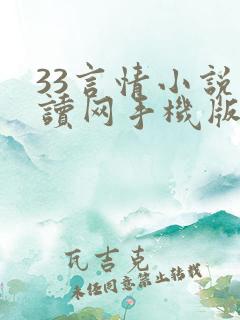 33言情小説
讀网手機版
瓦吉克
未经同意禁止转载